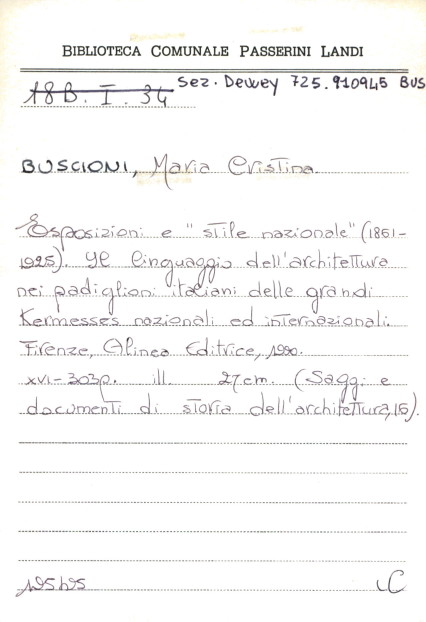 BIBLIOTECA COMUNALE PASSERINI LANDI
Sez. Dewey 725.910945 BUS
18B. I. 34
BUSCIONI, Maria Cristina.
Esposizioni e "stile nazionale" (1861-
1925). Il linguaggio dell'architettura
nei padiglioni italiani delle grandi
Kermesses nazionali ed internazionali.
Firenze, Alinea Editrice, 1990.
XVI-303p. ill. 27cm. (Saggi e
documenti di storia dell'architettura, 16).
C